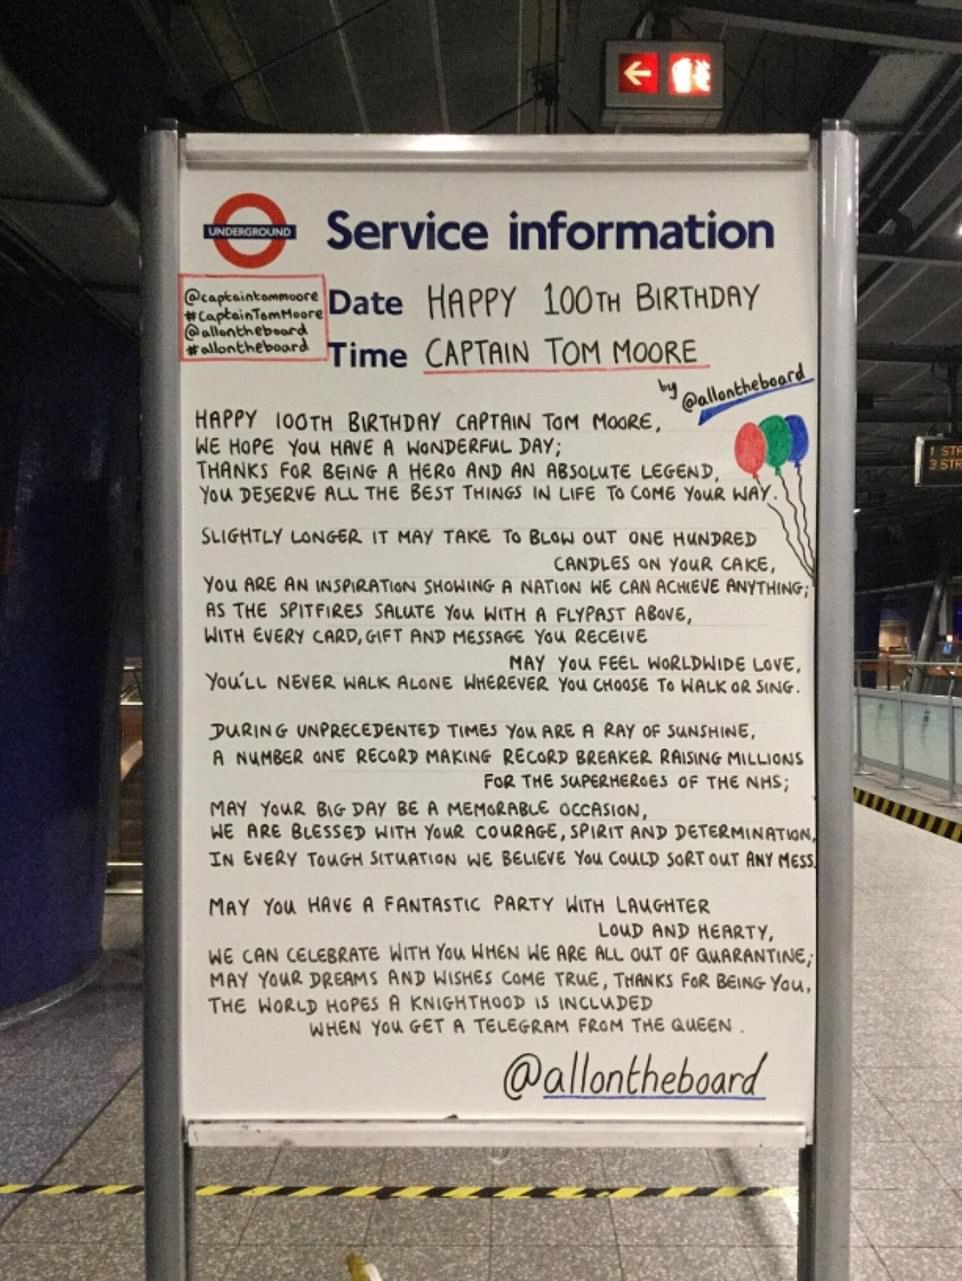 UNDERGROUND
Service information
@captaintommoore
#CaptainTomMoore
@allontheboard
#allontheboard
Date HAPPY 100TH BIRTHDAY
Time CAPTAIN TOM MOORE
by @allontheboard
HAPPY 100TH BIRTHDAY CAPTAIN TOM MOORE,
WE HOPE YOU HAVE A WONDERFUL DAY;
THANKS FOR BEING A HERO AND AN ABSOLUTE LEGEND,
YOU DESERVE ALL THE BEST THINGS IN LIFE TO COME YOUR WAY.
SLIGHTLY LONGER IT MAY TAKE TO BLOW OUT ONE HUNDRED
CANDLES ON YOUR CAKE,
YOU ARE AN INSPIRATION SHOWING A NATION WE CAN ACHIEVE ANYTHING;
AS THE SPITFIRES SALUTE YOU WITH A FLYPAST ABOVE,
WITH EVERY CARD, GIFT AND MESSAGE YOU RECEIVE
MAY YOU FEEL WORLDWIDE LOVE,
YOU'LL NEVER WALK ALONE WHEREVER YOU CHOOSE TO WALK OR SING.
DURING UNPRECEDENTED TIMES YOU ARE A RAY OF SUNSHINE,
A NUMBER ONE RECORD MAKING RECORD BREAKER RAISING MILLIONS
FOR THE SUPERHEROES OF THE NHS;
MAY YOUR BIG DAY BE A MEMORABLE OCCASION,
WE ARE BLESSED WITH YOUR COURAGE, SPIRIT AND DETERMINATION,
IN EVERY TOUGH SITUATION WE BELIEVE YOU COULD SORT OUT ANY MESS.
MAY YOU HAVE A FANTASTIC PARTY WITH LAUGHTER
LOUD AND HEARTY,
WE CAN CELEBRATE WITH YOU WHEN WE ARE ALL OUT OF QUARANTINE;
MAY YOUR DREAMS AND WISHES COME TRUE, THANKS FOR BEING YOU,
THE WORLD HOPES A KNIGHTHOOD IS INCLUDED
WHEN YOU GET A TELEGRAM FROM THE QUEEN.
@allontheboard
1 STR
3 STR